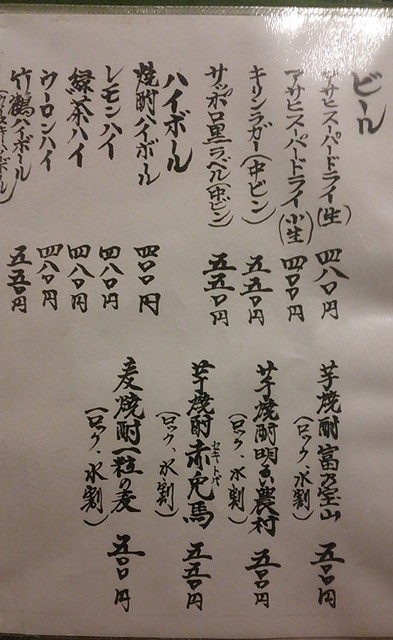 ビール
アサヒスーパードライ(生) 四八〇円
アサヒスーパードライ(小生) 四〇〇円
キリンラガー(中ビン) 五五〇円
サッポロ黒ラベル(中ビン) 五五〇円
ハイボール
焼酎ハイボール 四〇〇円
レモンハイ 四八〇円
緑茶ハイ 四八〇円
ウーロンハイ 四八〇円
竹鶴ハイボール 五五〇円
(ウイスキーハイボール)
芋焼酎 富乃宝山 五〇〇円
(ロック、水割)
芋焼酎 明るい農村 五〇〇円
(ロック、水割)
芋焼酎 赤兎馬 五五〇円
セキトバ
(ロック、水割)
麦焼酎 一粒の麦 五〇〇円
(ロック、水割)